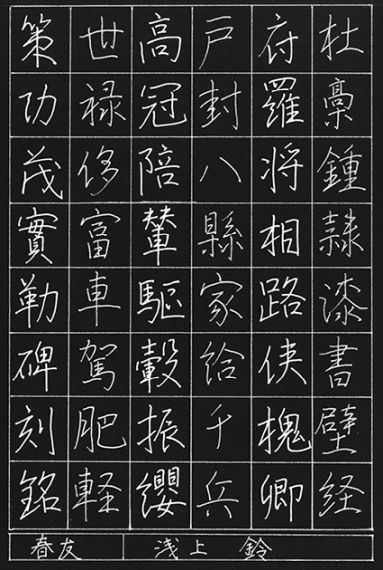 杜稾鍾隷漆書壁経
府羅将相路侠槐卿
戸封八縣家給千兵
高冠陪輦驅轂振纓
世禄侈富車駕肥軽
策功茂實勒碑刻銘
春友 浅上 鈴